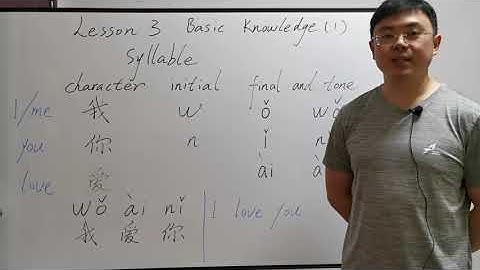 Lesson 3 Basic Knowledge (1)
Syllable
character initial final and tone
I/me 我 w ǒ wǒ
you 你 n ǐ n
love 爱 ài à
wǒ ài nǐ | I love you
我 爱 你